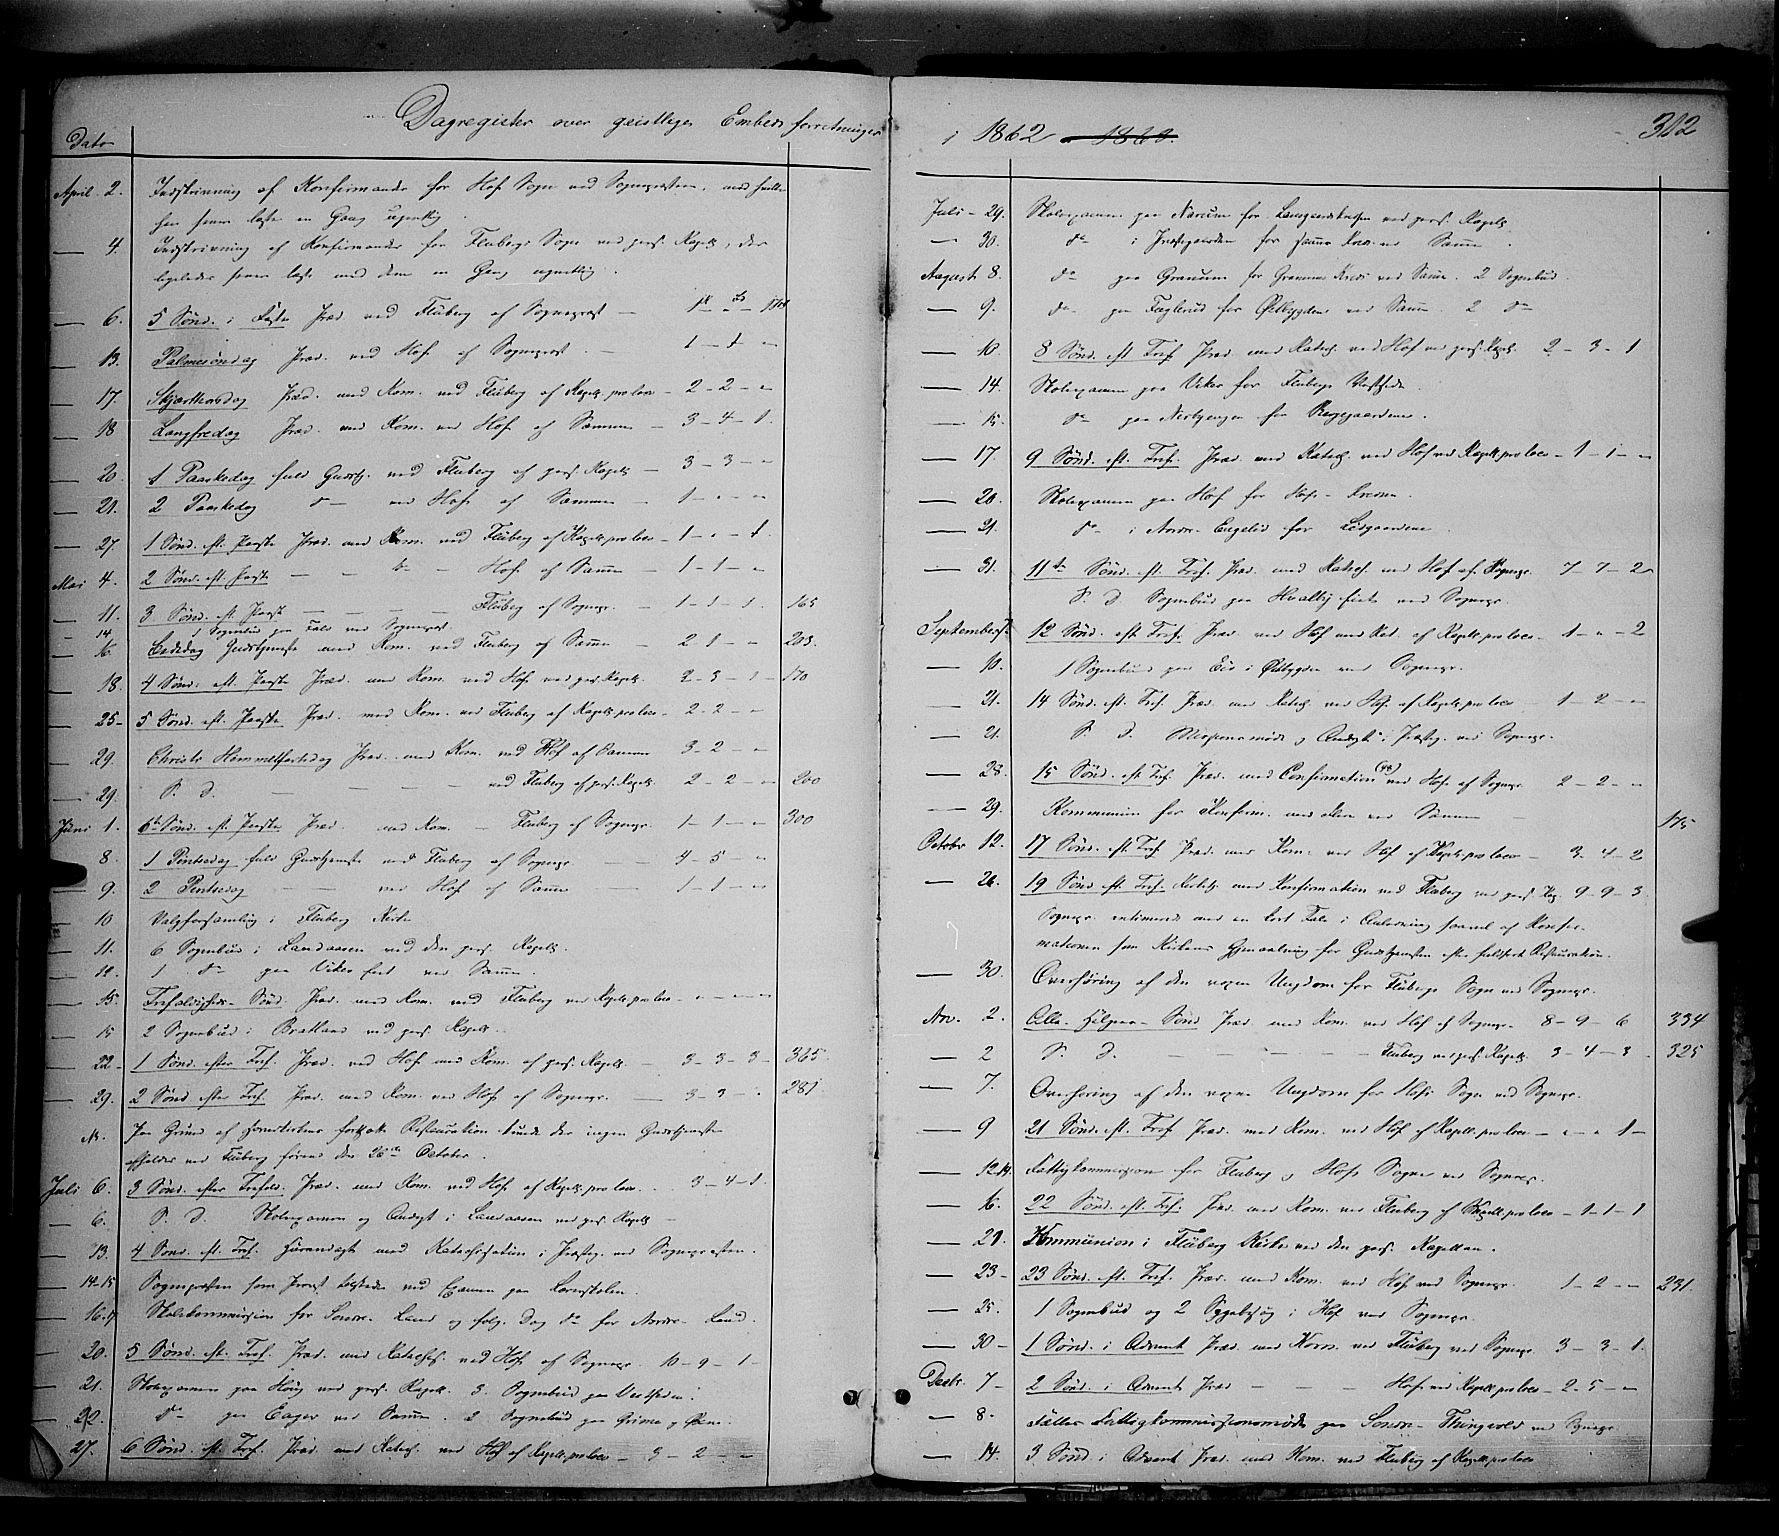 Dagregister over geistlige Embedsforretninger
Dato
April 2. Indskrivning af Konfirmander for Hof Sogn ved Sognepræsten, med
en Gang ugentlig.
— 4. Indskrivning af Konfirmander for Flubergs Sogn ved pers. Kapell., der
ligeledes læste med dem en Gang ugentlig.
— 6. 5 Sønd. i Faste Præd. ved Fluberg af Sognepræst —
— 13. Palmesøndag Præd. ved Hof af Sognepræst — 1 — 1 — "
— 17. Skjærthorsdag Præd. med Kom. ved Fluberg af Kapell. pro loco — 2 — 2 — "
— 18 Langfredag Præd. med Kom. ved Hof af Samme — 3 — 4 — 1.
— 20. 1 Paaskedag fuld Gudstj. ved Fluberg af pers. Kapell. — 3 — 3 — "
— 21. 2 Paaskedag do — ved Hof af Samme — 1 — " — "
— 27. 1 Sønd. eft. Paaske Præd. med Kom. ved Fluberg af Kapell. pro loco — 1 — " — 1.
Mai 4. 2 Sønd. eft. Paaske — — do — Hof af Samme — 1 — 1 — "
— 11. 3 Sønd. eft. Paaske — — — — Fluberg af Sognepr. — 1 — 1 — 1. 165
— 14 1 Sognebud paa Fald ved Sognepræst.
— 16. Bededag Gudstjeneste med Kom. ved Fluberg af Samme — 2 1 — " 203.
— 18. 4 Sønd. eft. Paaske Præd. med Kom. ved Hof ved pers. Kapell. 2 — 3 — 1 — 170
— 25 — 5 Sønd. eft. Paaske Præd. med Kom. ved Fluberg af Kapell. pro loco — 2 — 2 — "
— 29. Christi Himmelfartsdag Præd. med Kom. ved Hof af Samme 3 — 2 — "
— 29. S. D. — — — — ved Fluberg af pers. Kapell. 2 — 2 — " 200
Juni 1. 6te Sønd. eft. Paaske Præd. med Kom. — Fluberg af Sognepr. 1 — 1 — " 300
8. 1 Pintsedag fuld Gudstjeneste ved Fluberg af Sognepr. — 4 — 5 "
— 9. 2 Pintsedag — — ved Hof af Samme — 1 — 1 — "
— 10 Valgforsamling i Fluberg Kirke
— 11. 6 Sognebud i Landaasen ved den pers. Kapell.
— 12. 1 do paa Viker ved Samme.
— 15. Trefoldigheds-Sønd. Præd. med Kom. ved Fluberg ved Kapell. pro loco — " — " — "
— 15 2 Sognebud i Bratland ved pers. Kapell.
— 22 — 1 Sønd. efter Tref. Præd. ved Hof med Kom. af pers. Kapell. — 3 — 3 — 3 — 365
— 29. 2 Sønd. efter Tref. Præd. med Kom. ved Hof af Sognepr. — 3 — 3 — " 281
Paa Grund af Restauration kunde der ingen Gudstjeneste
afholdes ved Fluberg førend den 26de October.
Juli 6. 3 Sønd. efter Trefold. Præd. med Kom. ved Hof af Kapell. pro loco. 3 — 4 — 1.
— 6. S. D. Skoleexamen og Andagt i Landaasen ved pers. Kapell. —
— 13. 4 Sønd. eft. Tref. med Katechisation i Præsteg. ved Sognepræsten.
— 14-15 Sognepræsten som Provst ved Examen paa Lærerskolen.
— 16.17 Skolekommission for Søndre-Land og følg. Dag do for Nordre-Land.
— 20. 5 Sønd. eft. Tref. Præd. med Katech. ved Hof af Sognepr. 10 — 9 — 1 —
— 21. Skoleexamen paa Houg ved pers. Kapell. 3 Sognebud paa Vestsiden.
— 22. do paa Eager ved Samme. 2 Sognebud paa Grime og
— 27. 6 Sønd. eft. Tref. Præd. med Katech. ved Hof af Kapell. pro loco — 3 — 2 — "
i 1862 1860. 302
Juli — 29. Skoleexamen paa Narum for ved pers. Kapell.
— 30. do i Præstegaarden for samme Kreds ved Samme.
August 8. do paa Granum for Granums Kreds ved Samme. 2 Sognebud.
— 9. do paa Faglerud for Østbygden ved Samme. 2 do
— 10. 8 Sønd. eft. Tref. Præd. med Katech. ved Hof ved pers. Kapell. 2 — 3 — 1
— 14. Skoleexamen paa Viker for Flubergs Vestside.
— 15. do paa for
— 17 9 Sønd. eft. Tref. Præd. med Katech. ved Hof ved Kapell. pro loco — 1 — 1 — "
— 20. Skoleexamen paa Hof for Hofs-Kredsen.
— 21. do i Nordre Engelid for Lidgaardene.
— 31. 11te Sønd. eft. Tref. Præd. med Katech. ved Hof af Sognepr. 7 — 7 — 2
S. D. Sognebud paa Hvalby ved Sognepr.
September 7. 12 Sønd. eft. Tref. Præd. ved Hof med Kat. af Kapell. pro loco — 1 — " — 2
— 10. 1 Sognebud paa Eid i Østbygden ved Sognepr.
— 21. 14 Sønd. eft. Tref. Præd. med Katech. ved Hof af Kapell. pro loco — 1 — 2 — "
— 21. S. D. Missionsmøde og Andagt i Præsteg. ved Sognepr.
— 28. 15 Sønd. eft. Tref. Præd. med Confirmation ved Hof af Sognepr. 2 — 2 — "
— 29. Kommunion for Konfirm. med flere ved Samme — 175
October 12. 17 Sønd. eft. Tref. Præd. med Kom. ved Hof af Kapell. pro loco — 3 — 4 — 2
— 26. 19 Sønd. eft. Tref. Katech. med Konfirmation ved Fluberg ved pers. Kap. 9 — 9 — 3.
Sognepr. intimerede med en kort Tale i Anledning saavel af Konfir-
mationen som Kirkens Gjenaabning for Gudstjenesten efter fuldført Restauration.
— 30 Overhøring af den voxne Ungdom for Flubergs Sogn ved Sognepr.
Nov. 2. Alle-Helgens-Sønd Præd. med Kom. ved Hof af Sognepr. 8 — 9 — 6 334
— 2 S. D. — — — — Fluberg ved pers. Kapell. 3 — 4 — 3 325
— 7. Overhøring af den voxne Ungdom for Hofs Sogn ved Sognepr.
— 9 21 Sønd. eft. Tref. Præd. med Kom. ved Hof af Kapell. pro loco — " — " 1 —
— 12.14. Fattigkommission for Fluberg og Hofs Sogne ved Sognepr.
— 16. 22 Sønd. eft. Tref. Præd. med Kom. ved Fluberg af Kapell. pro loco — 1 — 1 — 1
— 21 Kommunion i Fluberg Kirke ved den pers. Kapellan.
— 23 — 23 Sønd. eft. Tref. Præd. med Kom. ved Hof ved Sognepr. 1 — 2 — " 231.
— 25. 1 Sognebud og 2 Sygebesøg i Hof ved Sognepr.
— 30 — 1 Sønd. i Advent Præd. med Kom. ved Fluberg ved Sognepr. 3 — 3 — 1.
Decbr. 7 — 2 Sønd. i Advent Præd — — — Hof ved Kapell. pro loco — 2 — 5 — "
— 8. Fælles Fattigkommissionsmøde paa Søndre-Thingvold ved Sognepr.
— 14. 3 Sønd. i Advent Præd. med Kom. ved Fluberg af Kapell. pro loco